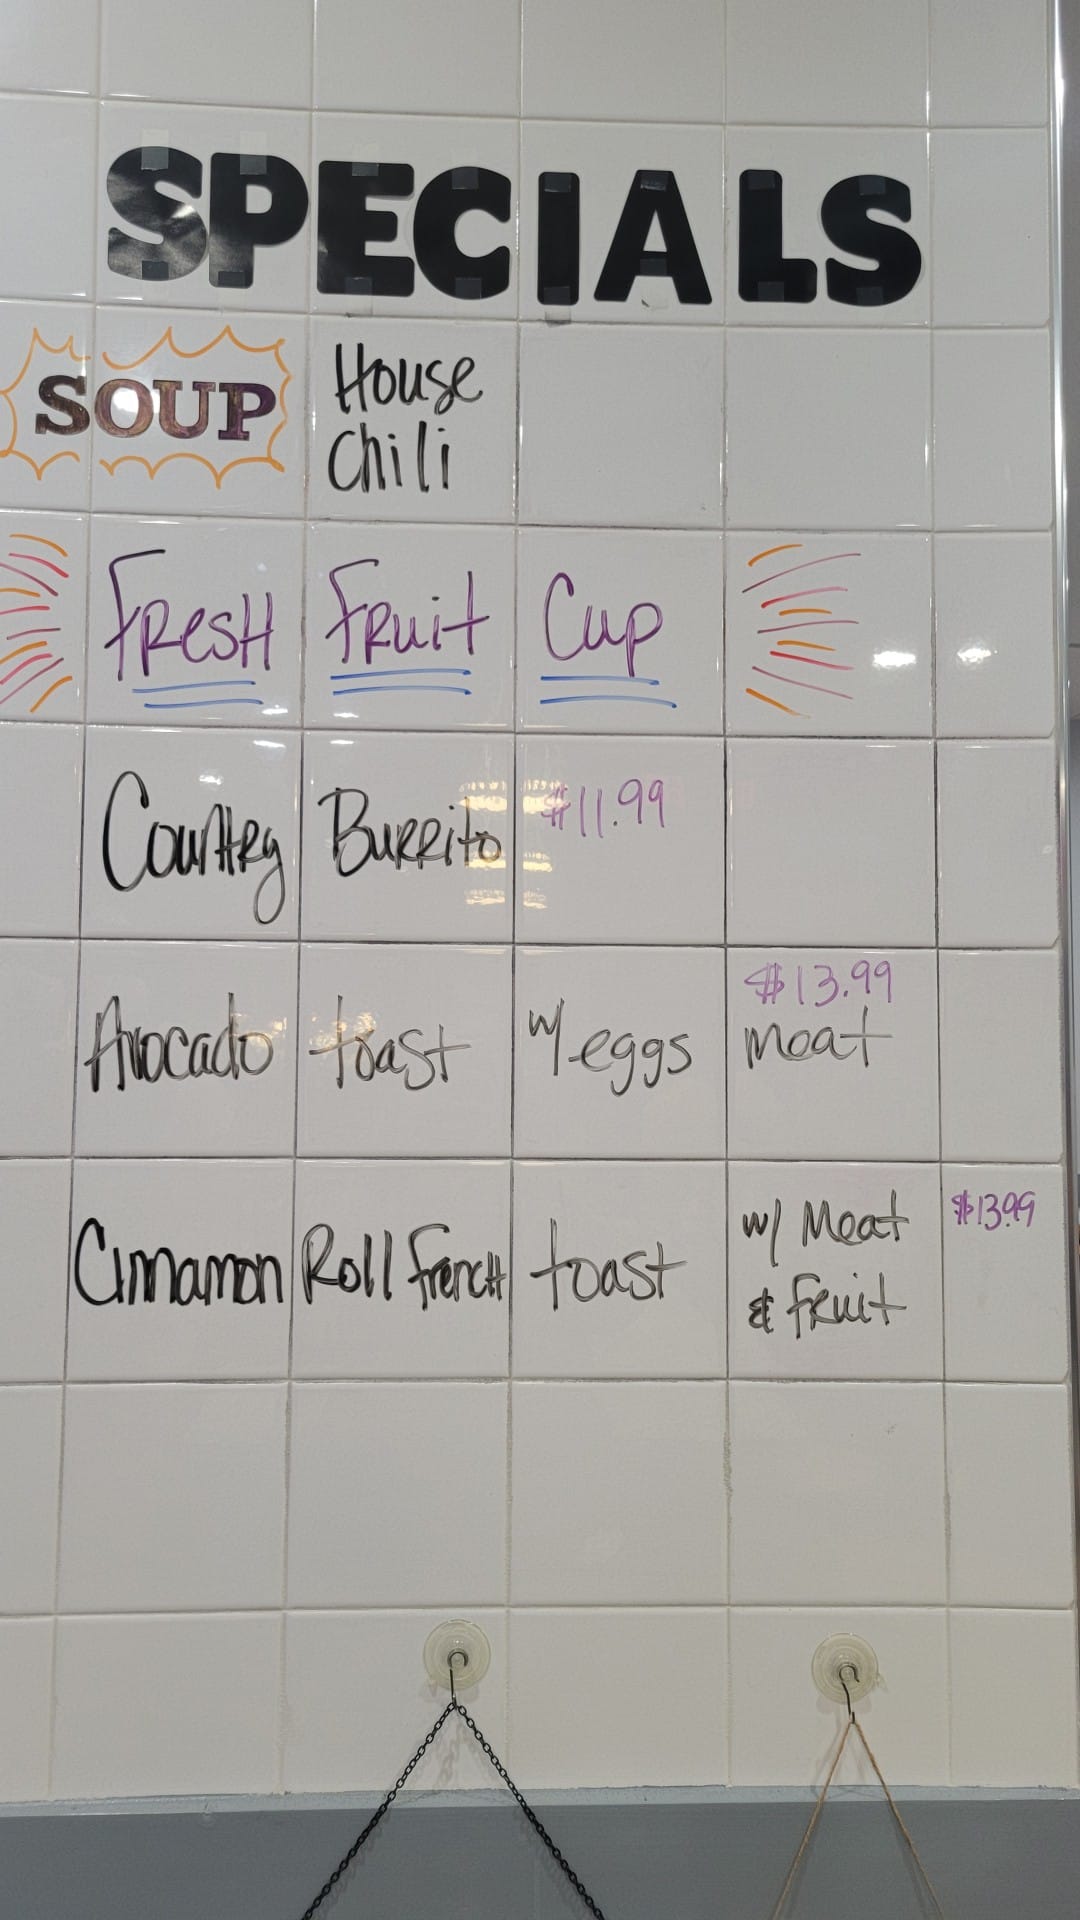 SPECIALS
SOUP House
Chili
Fresh Fruit Cup
Country Burrito $11.99
$13.99
Avocado toast w/ eggs meat
Cinnamon Roll French toast w/ Meat $13.99
& Fruit